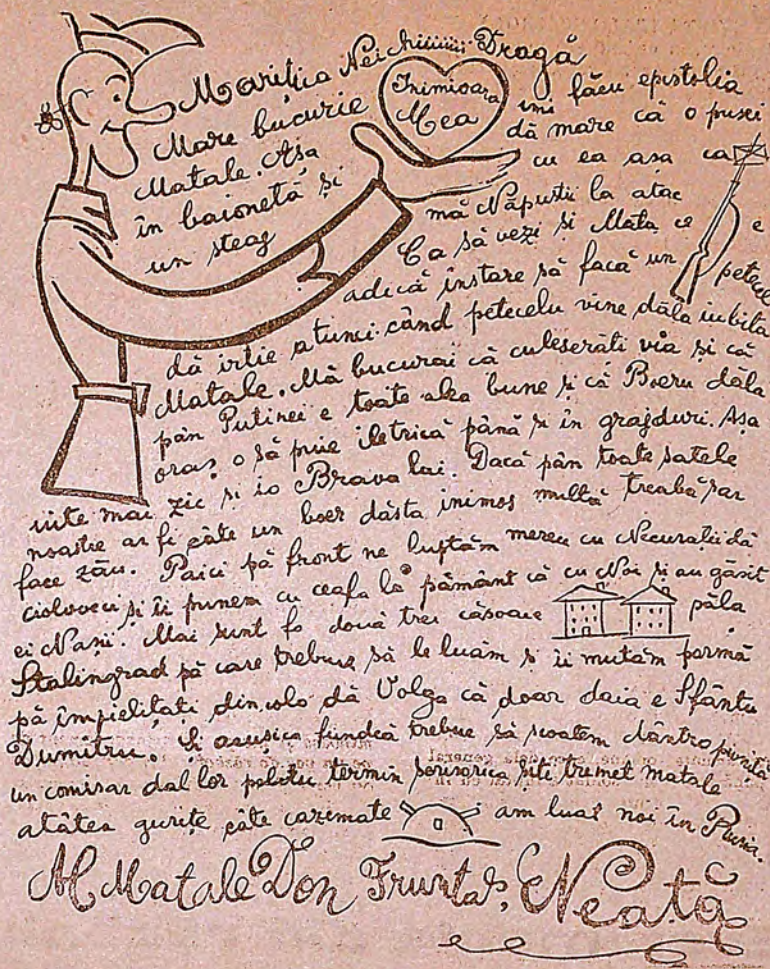 Marițica Neichiiiiiii Dragă
Inimioara
Mea
Mare bucurie îmi făcu epistolia
Matale. Așa dă mare că o pusei
în baionetă și cu ea așa ca
un steag mă Năpustii la atac
Ca să vezi și Mata ce e
adică înstare să facă un petecel
dă irtie atunci când petecelu vine dăla iubita
Matale. Mă bucurai că culeserăti via și că
pân Putinei e toate alea bune și că Boeru dăla
oraș o să puie iletrică până și în grajduri. Așa
uite mai zic și io Bravo lui. Dacă pân toate satele
noastre ar fi câte un boer dăsta inimos multă treabă sar
face zău. Paici pă front ne luptăm mereu cu Necurații dă
cioloveci și îi punem cu ceafa la pământ că cu Noi și au găsit
ei Nașii. Mai sunt fo două trei căsoaie păla
Stalingrad pă care trebuie să le luăm și îi mutăm pormă
pă împielițați dincolo dă Volga că doar daia e Sfântu
Dumitru. Și acușica fundcă trebue să scoatem dântro pivniță
un comisar dal lor politic termin scrisorica și te trimet matale
atâtea gurițe câte cazemate am luat noi în Rusia.
Al Matale Don Fruntaș, Neată